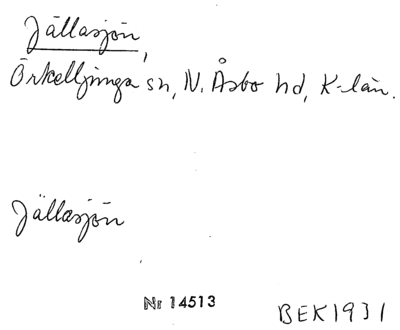 Jällasjön,
Örkelljunga sn, N. Åsbo hd, K-län.
Jällasjön
Nr 14513
BEK1931